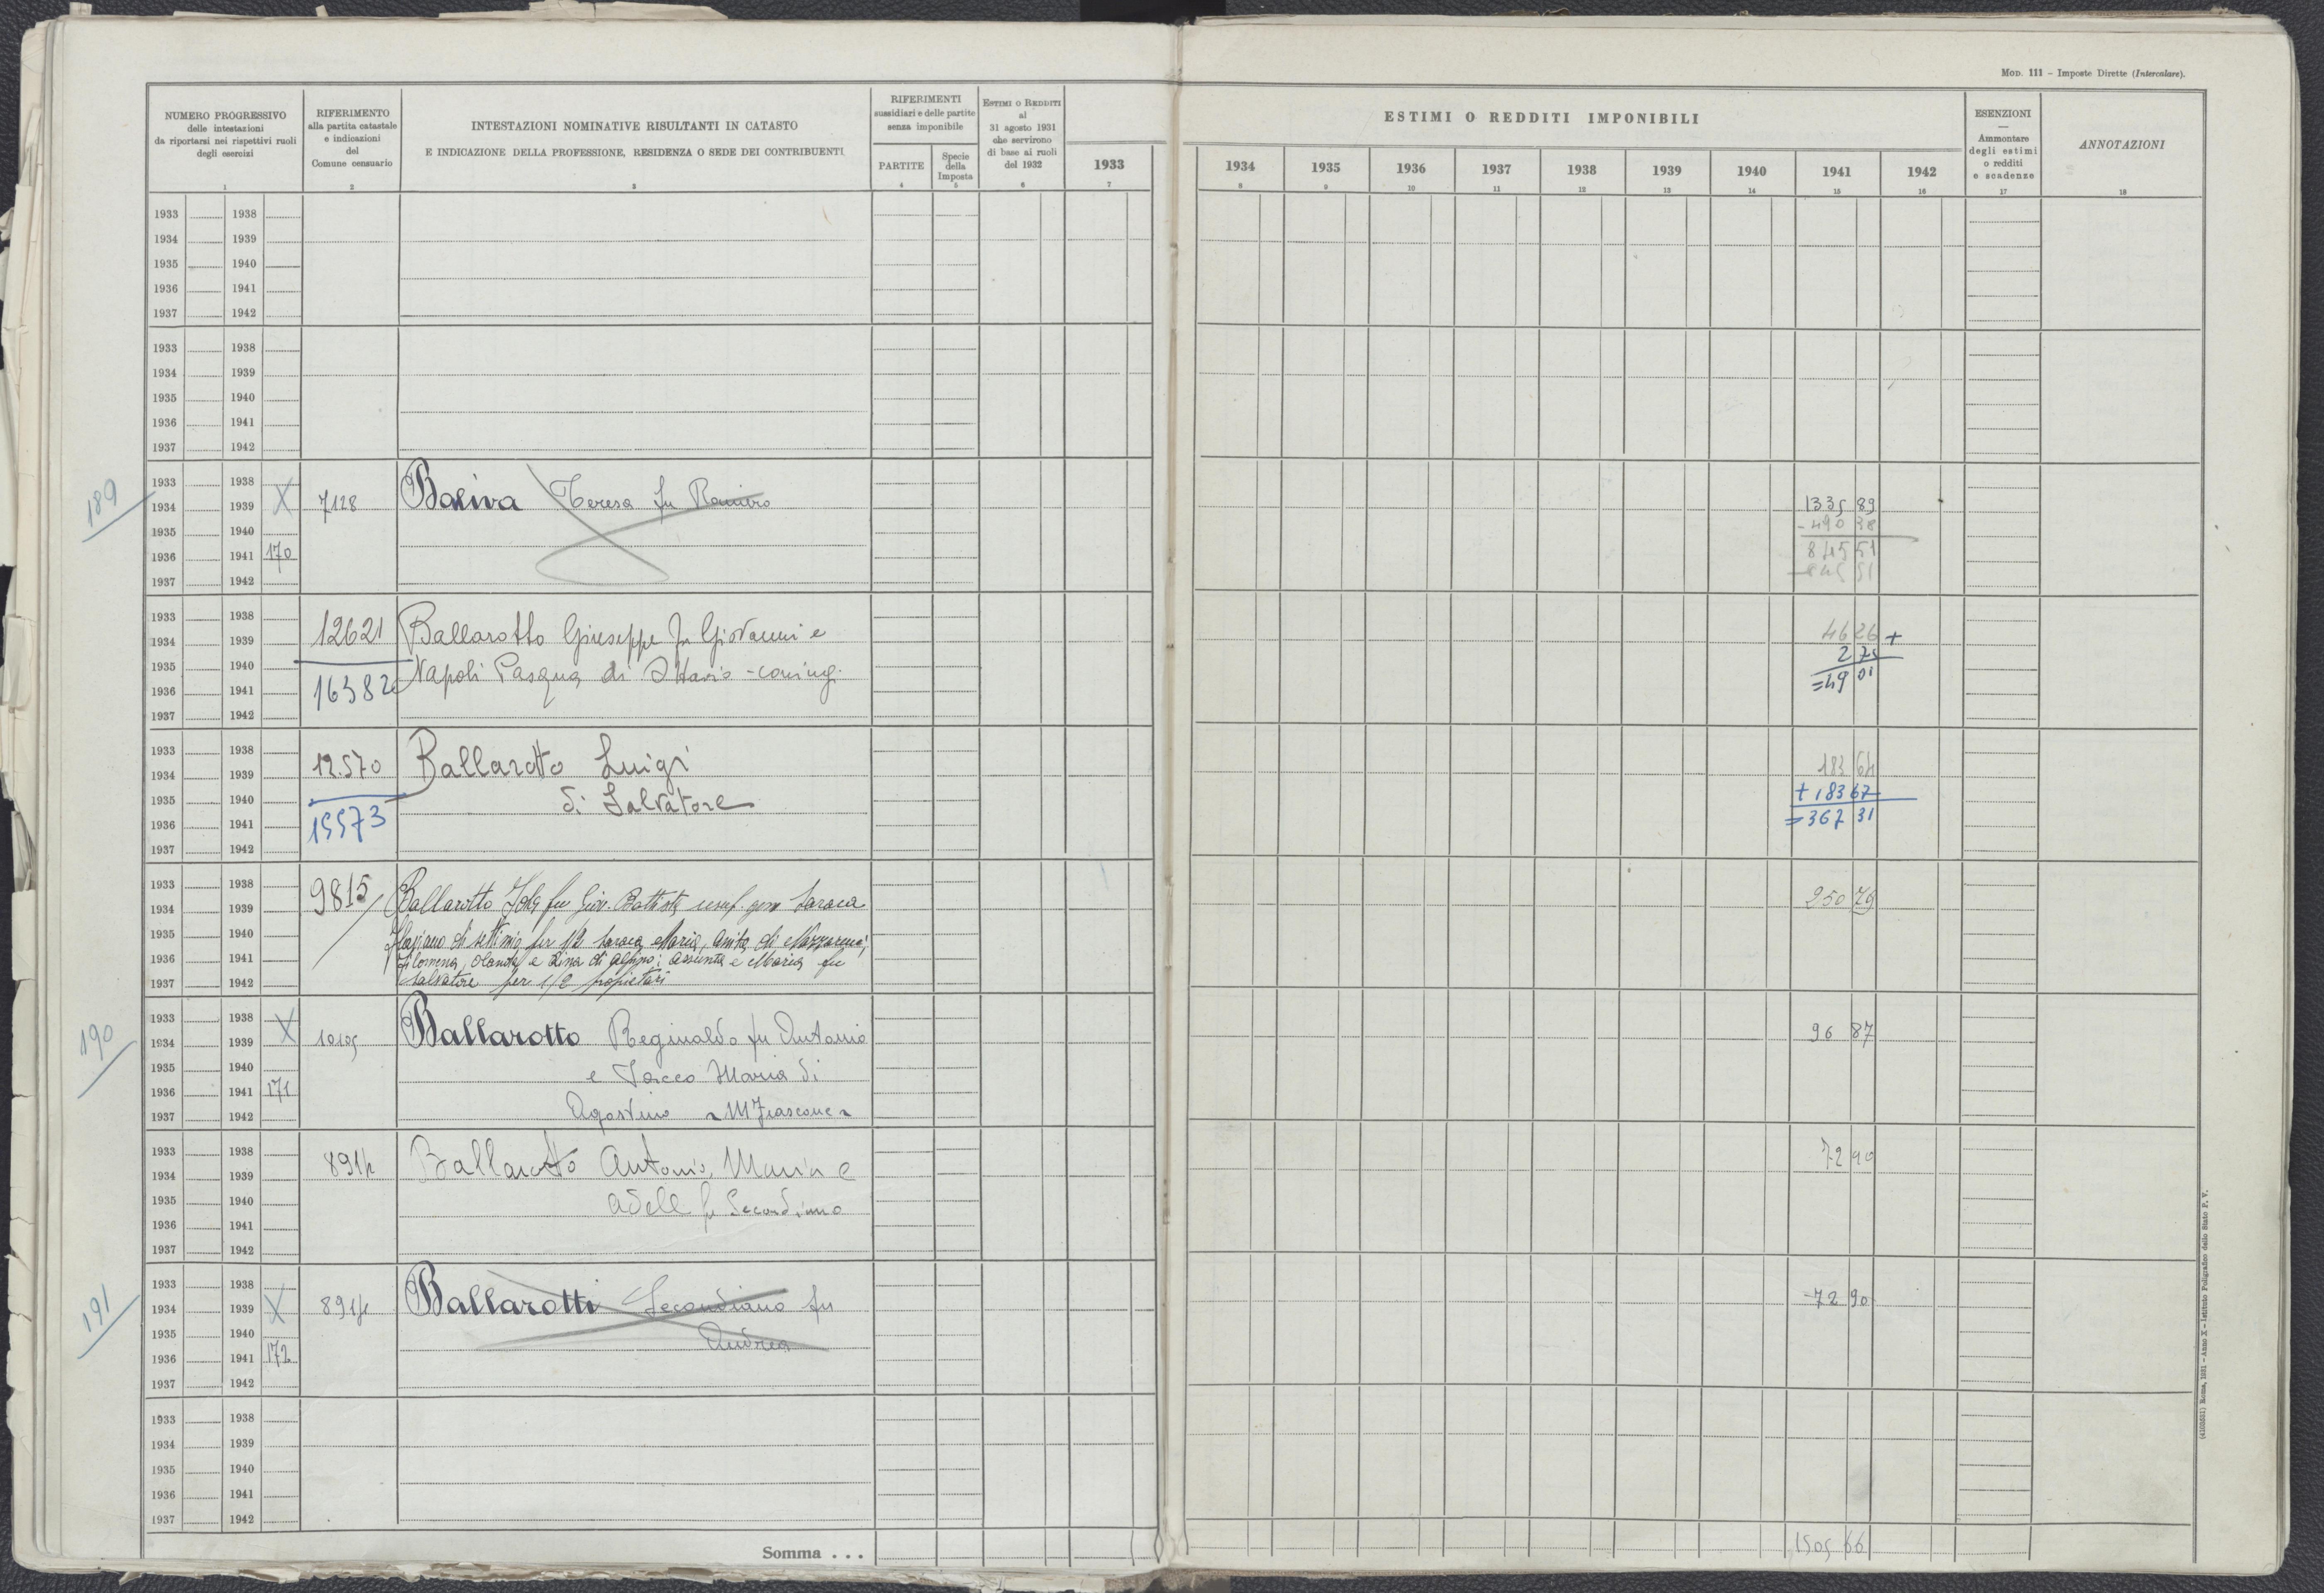 MOD. 111 – Imposte Dirette (Intercalare).
NUMERO PROGRESSIVO
delle intestazioni
da riportarsi nei rispettivi ruoli
degli esercizi
1
RIFERIMENTO
alla partita catastale
e indicazioni
del
Comune censuario
2
INTESTAZIONI NOMINATIVE RISULTANTI IN CATASTO
E INDICAZIONE DELLA PROFESSIONE, RESIDENZA O SEDE DEI CONTRIBUENTI
3
RIFERIMENTI
sussidiari e delle partite
senza imponibile
PARTITE
4
Specie
della
Imposta
5
ESTIMI O REDDITI
al
31 agosto 1931
che servirono
di base ai ruoli
del 1932
6
ESTIMI O REDDITI IMPONIBILI
1933 1934 1935 1936 1937 1938 1939 1940 1941 1942
7 8 9 10 11 12 13 14 15 16
ESENZIONI
—
Ammontare
degli estimi
o redditi
e scadenze
17
ANNOTAZIONI
18
1933 1938
1934 1939
1935 1940
1936 1941
1937 1942
1933 1938
1934 1939
1935 1940
1936 1941
1937 1942
189
1933 1938
1934 1939 X 7128 Baliva Teresa fu Ramiro 1335 89
1935 1940 - 490 38
1936 1941 170 845 51
1937 1942 - 845 51
1933 1938
1934 1939 12621 Ballarotto Giuseppe fu Giovanni e 46 26 +
1935 1940 Napoli Pasqua di Ottavio - coniugi 2 75
1936 1941 16382 = 49 01
1937 1942
1933 1938
1934 1939 12.570 Ballarotto Luigi 183 64
1935 1940 di Salvatore + 183 67
1936 1941 15573 = 367 31
1937 1942
1933 1938
1934 1939 9815 Ballarotto fu Giov. Battista usuf. Saraca 250 79
1935 1940 di Settimio per 1/2 Saraca Maria, Anita di
1936 1941 Filomena, e Lina di Assunta e Maria fu
1937 1942 Salvatore per 1/2 propietari
190
1933 1938 X
1934 1939 10105 Ballarotto Reginaldo fu Antonio 96 87
1935 1940 e Maria di
1936 1941 171
1937 1942 Agostino
1933 1938
1934 1939 8914 Ballarotto Antonio, Maria e 72 90
1935 1940 Adele fu Secondiano
1936 1941
1937 1942
191
1933 1938
1934 1939 X 8914 Ballarotti Secondiano fu -72 90
1935 1940 Andrea
1936 1941 172
1937 1942
1933 1938
1934 1939
1935 1940
1936 1941
1937 1942
Somma . . . 1505 66
(4103531) Roma, 1931 – Anno X – Istituto Poligrafico dello Stato P. V.